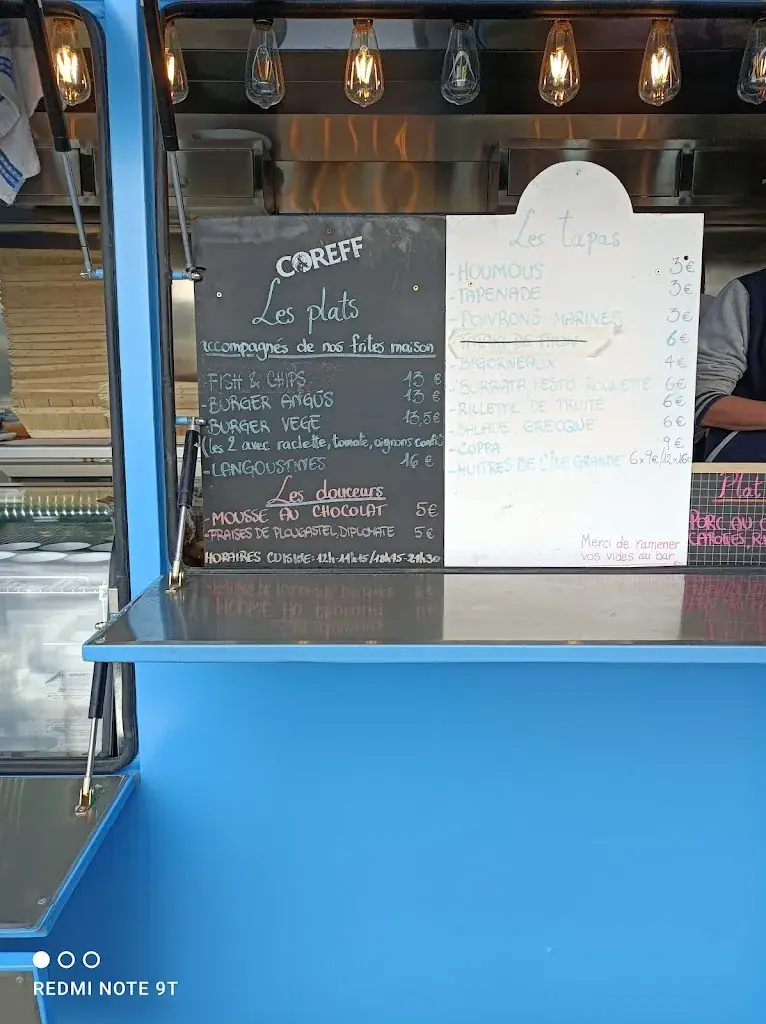 COREFF
Les plats
accompagnés de nos frites maison
-FISH & CHIPS 13 €
-BURGER ANGUS 13 €
-BURGER VEGE 13,5€
(les 2 avec raclette, tomate, oignons confits)
-LANGOUSTINES 16 €
Les douceurs
-MOUSSE AU CHOCOLAT 5€
-FRAISES DE PLOUGASTEL, DIPLOMATE 5€
HORAIRES CUISINE: 12h-
Les tapas
-HOUMOUS 3€
-TAPENADE 3€
-POIVRONS MARINES 3€
6€
-BIGORNEAUX 4€
-BURRATA PESTO ROQUETTE 6€
-RILLETTE DE TRUITE 6€
-SALADE GRECQUE 6€
-COPPA 9€
-HUITRES DE L'ÎLE GRANDE 6x9€/12x16€
Merci de ramener
vos vides au bar
Plat
PORC AU